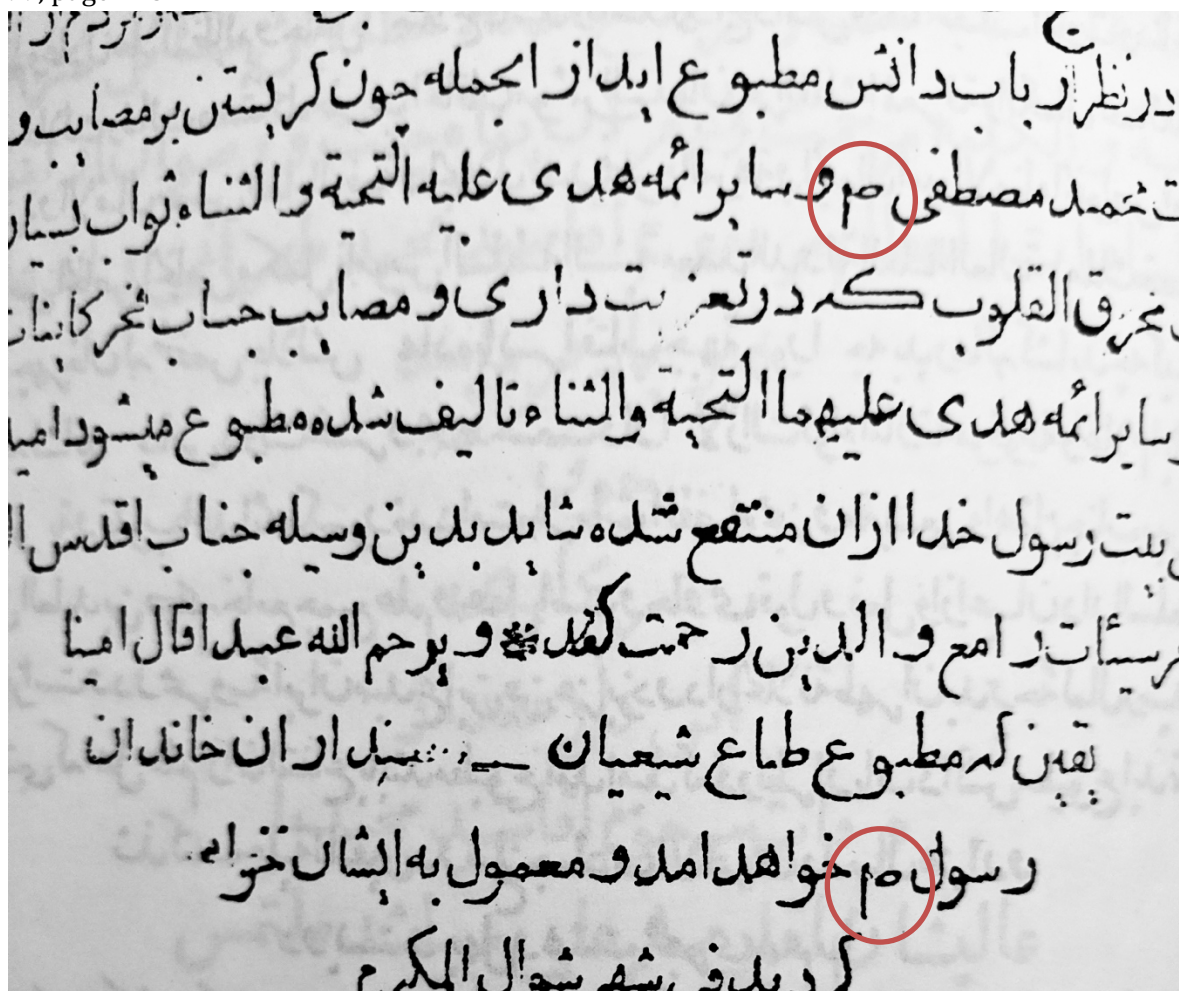 در نظر ارباب دانش مطبوع اید از انجمله چون کریستن بر مصایب و
محمد مصطفی صم و سایر ائمه هدی علیه التحیة و الثناء ثواب بسیار
محرق القلوب که در تعزیت داری و مصایب جناب فخر کاینات
و سایر ائمه هدی علیهما التحیة والثناء تالیف شده مطبوع میشود امید
بیت رسول خدا ازان منتفع شده شاید بدین وسیله جناب اقدس
سیئات رامع والدین رحمت کند و یرحم الله عبدا قال امینا
یقین که مطبوع طباع شیعیان اران خاندان
رسول صم خواهد امد و معمول به ایشان
کردید فی شهر شوال المکرم